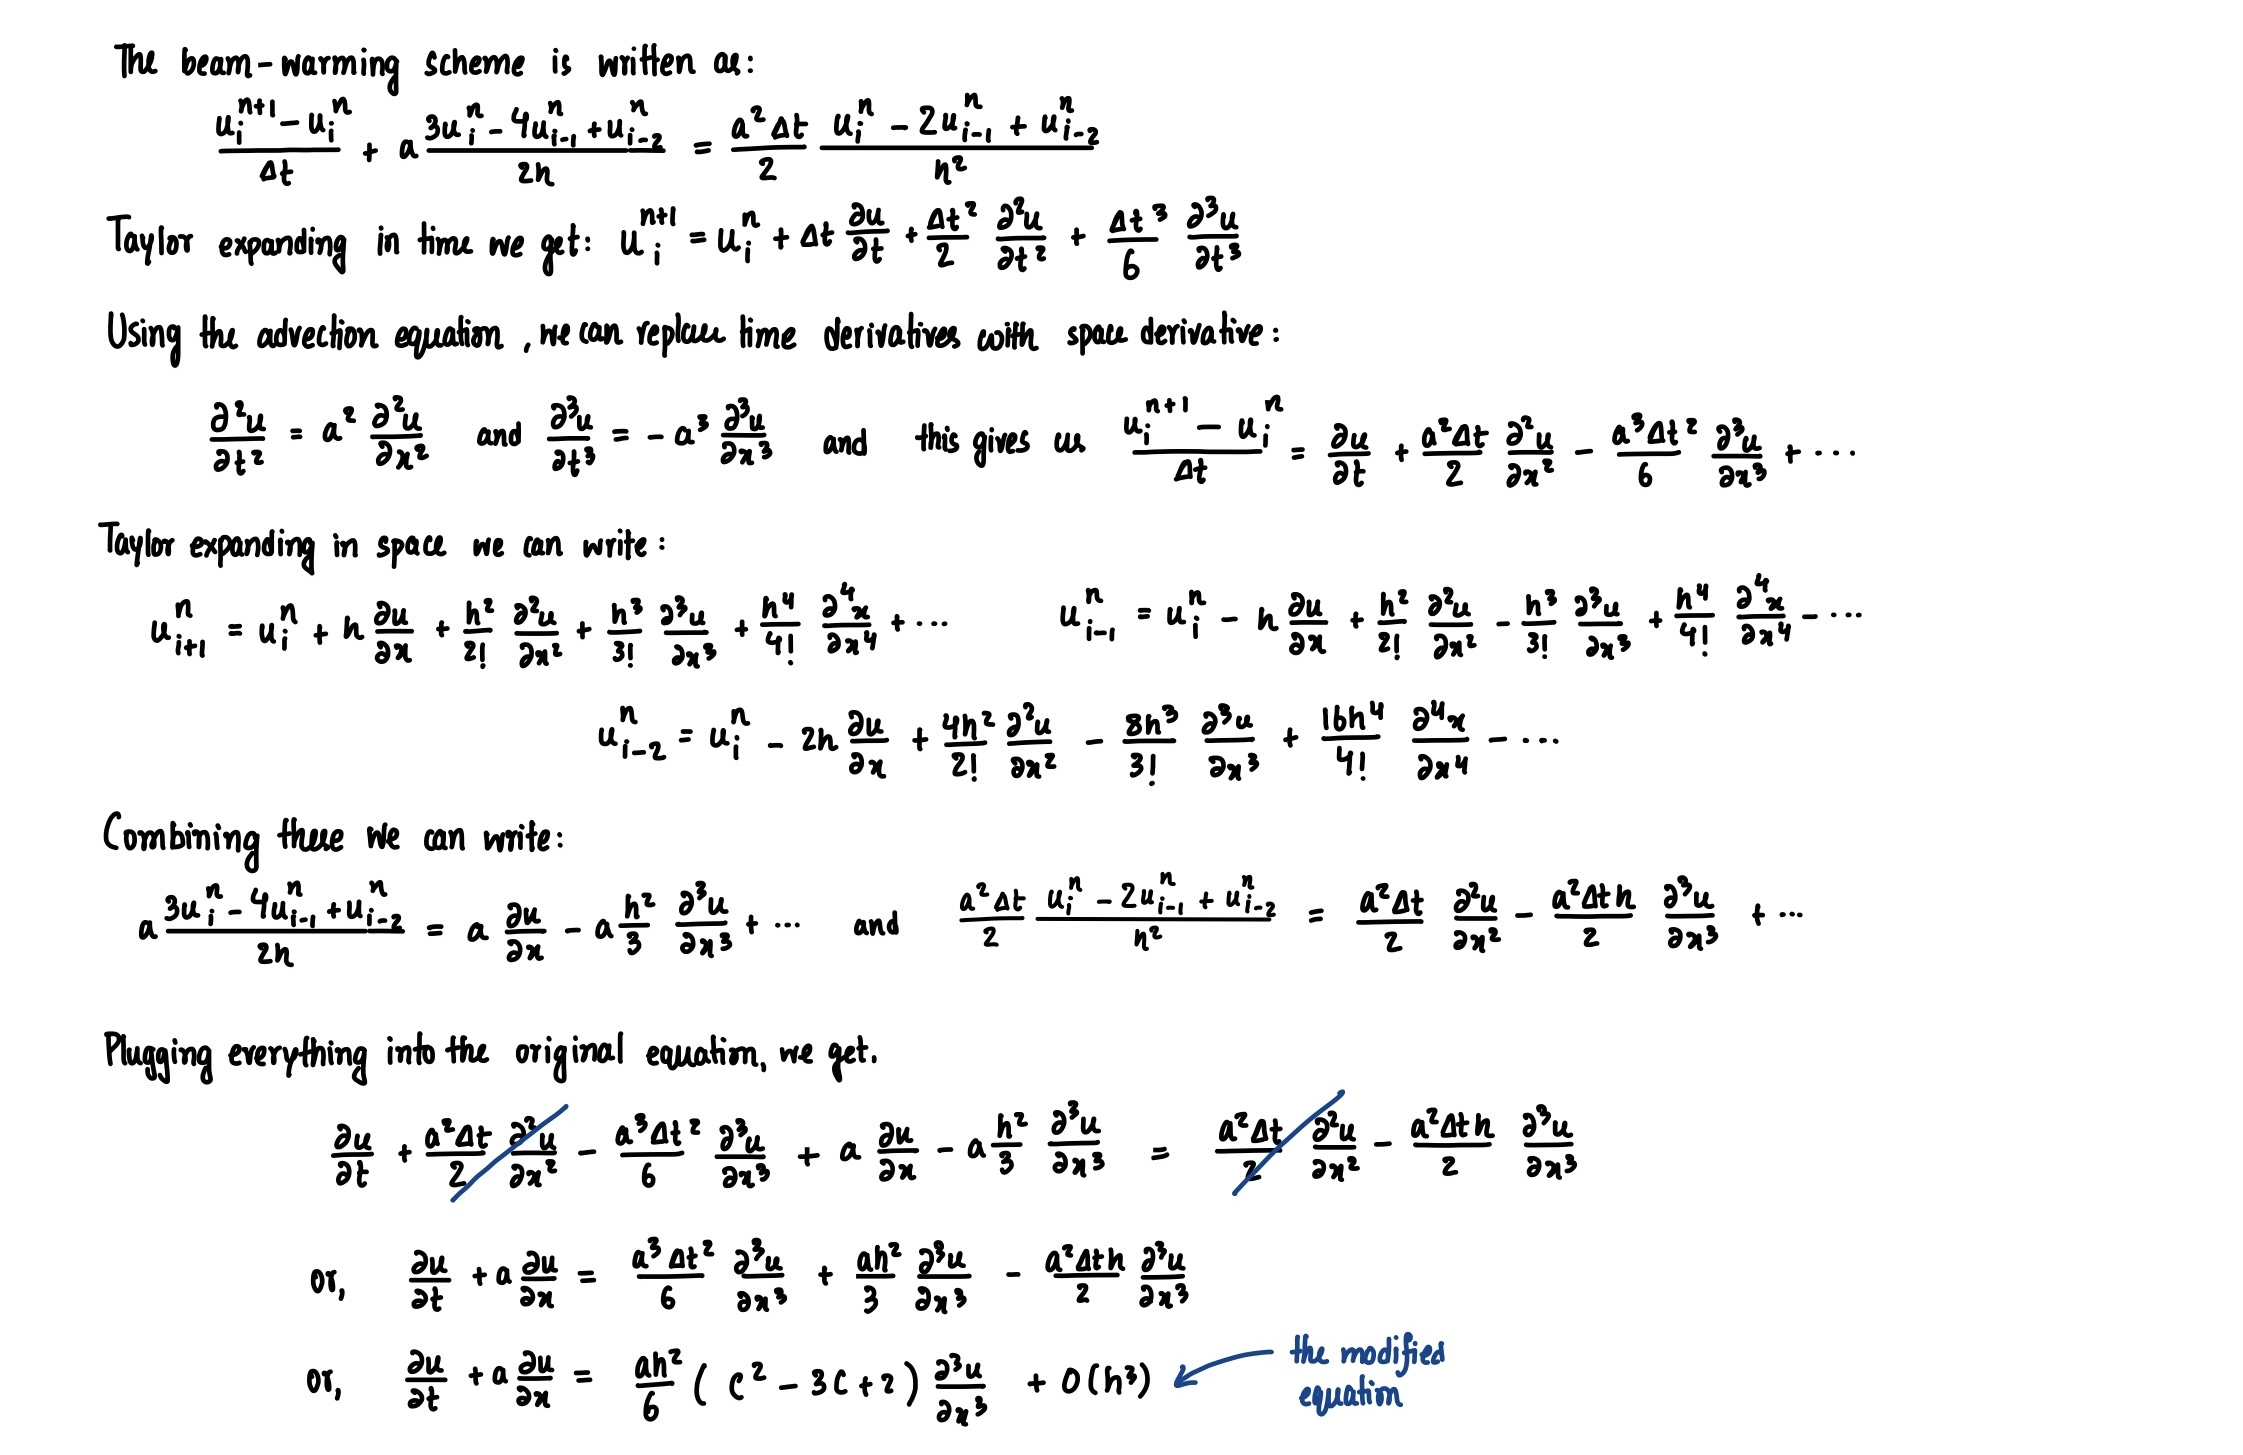 The beam-warming scheme is written as:
(u_i^{n+1} - u_i^n)/Δt + a (3u_i^n - 4u_{i-1}^n + u_{i-2}^n)/2h = a²Δt/2 (u_i^n - 2u_{i-1}^n + u_{i-2}^n)/h²
Taylor expanding in time we get: u_i^{n+1} = u_i^n + Δt ∂u/∂t + Δt²/2 ∂²u/∂t² + Δt³/6 ∂³u/∂t³
Using the advection equation, we can replace time derivatives with space derivative:
∂²u/∂t² = a² ∂²u/∂x² and ∂³u/∂t³ = - a³ ∂³u/∂x³ and this gives us (u_i^{n+1} - u_i^n)/Δt = ∂u/∂t + a²Δt/2 ∂²u/∂x² - a³Δt²/6 ∂³u/∂x³ + ...
Taylor expanding in space we can write:
u_{i+1}^n = u_i^n + h ∂u/∂x + h²/2! ∂²u/∂x² + h³/3! ∂³u/∂x³ + h⁴/4! ∂⁴x/∂x⁴ + ... u_{i-1}^n = u_i^n - h ∂u/∂x + h²/2! ∂²u/∂x² - h³/3! ∂³u/∂x³ + h⁴/4! ∂⁴x/∂x⁴ - ...
u_{i-2}^n = u_i^n - 2h ∂u/∂x + 4h²/2! ∂²u/∂x² - 8h³/3! ∂³u/∂x³ + 16h⁴/4! ∂⁴x/∂x⁴ - ...
Combining these we can write:
a (3u_i^n - 4u_{i-1}^n + u_{i-2}^n)/2h = a ∂u/∂x - a h²/3 ∂³u/∂x³ + ... and a²Δt/2 (u_i^n - 2u_{i-1}^n + u_{i-2}^n)/h² = a²Δt/2 ∂²u/∂x² - a²Δth/2 ∂³u/∂x³ + ...
Plugging everything into the original equation, we get.
∂u/∂t + a²Δt/2 ∂²u/∂x² - a³Δt²/6 ∂³u/∂x³ + a ∂u/∂x - a h²/3 ∂³u/∂x³ = a²Δt/2 ∂²u/∂x² - a²Δth/2 ∂³u/∂x³
or, ∂u/∂t + a ∂u/∂x = a³Δt²/6 ∂³u/∂x³ + ah²/3 ∂³u/∂x³ - a²Δth/2 ∂³u/∂x³
or, ∂u/∂t + a ∂u/∂x = ah²/6 (c² - 3c + 2) ∂³u/∂x³ + O(h³)
the modified
equation